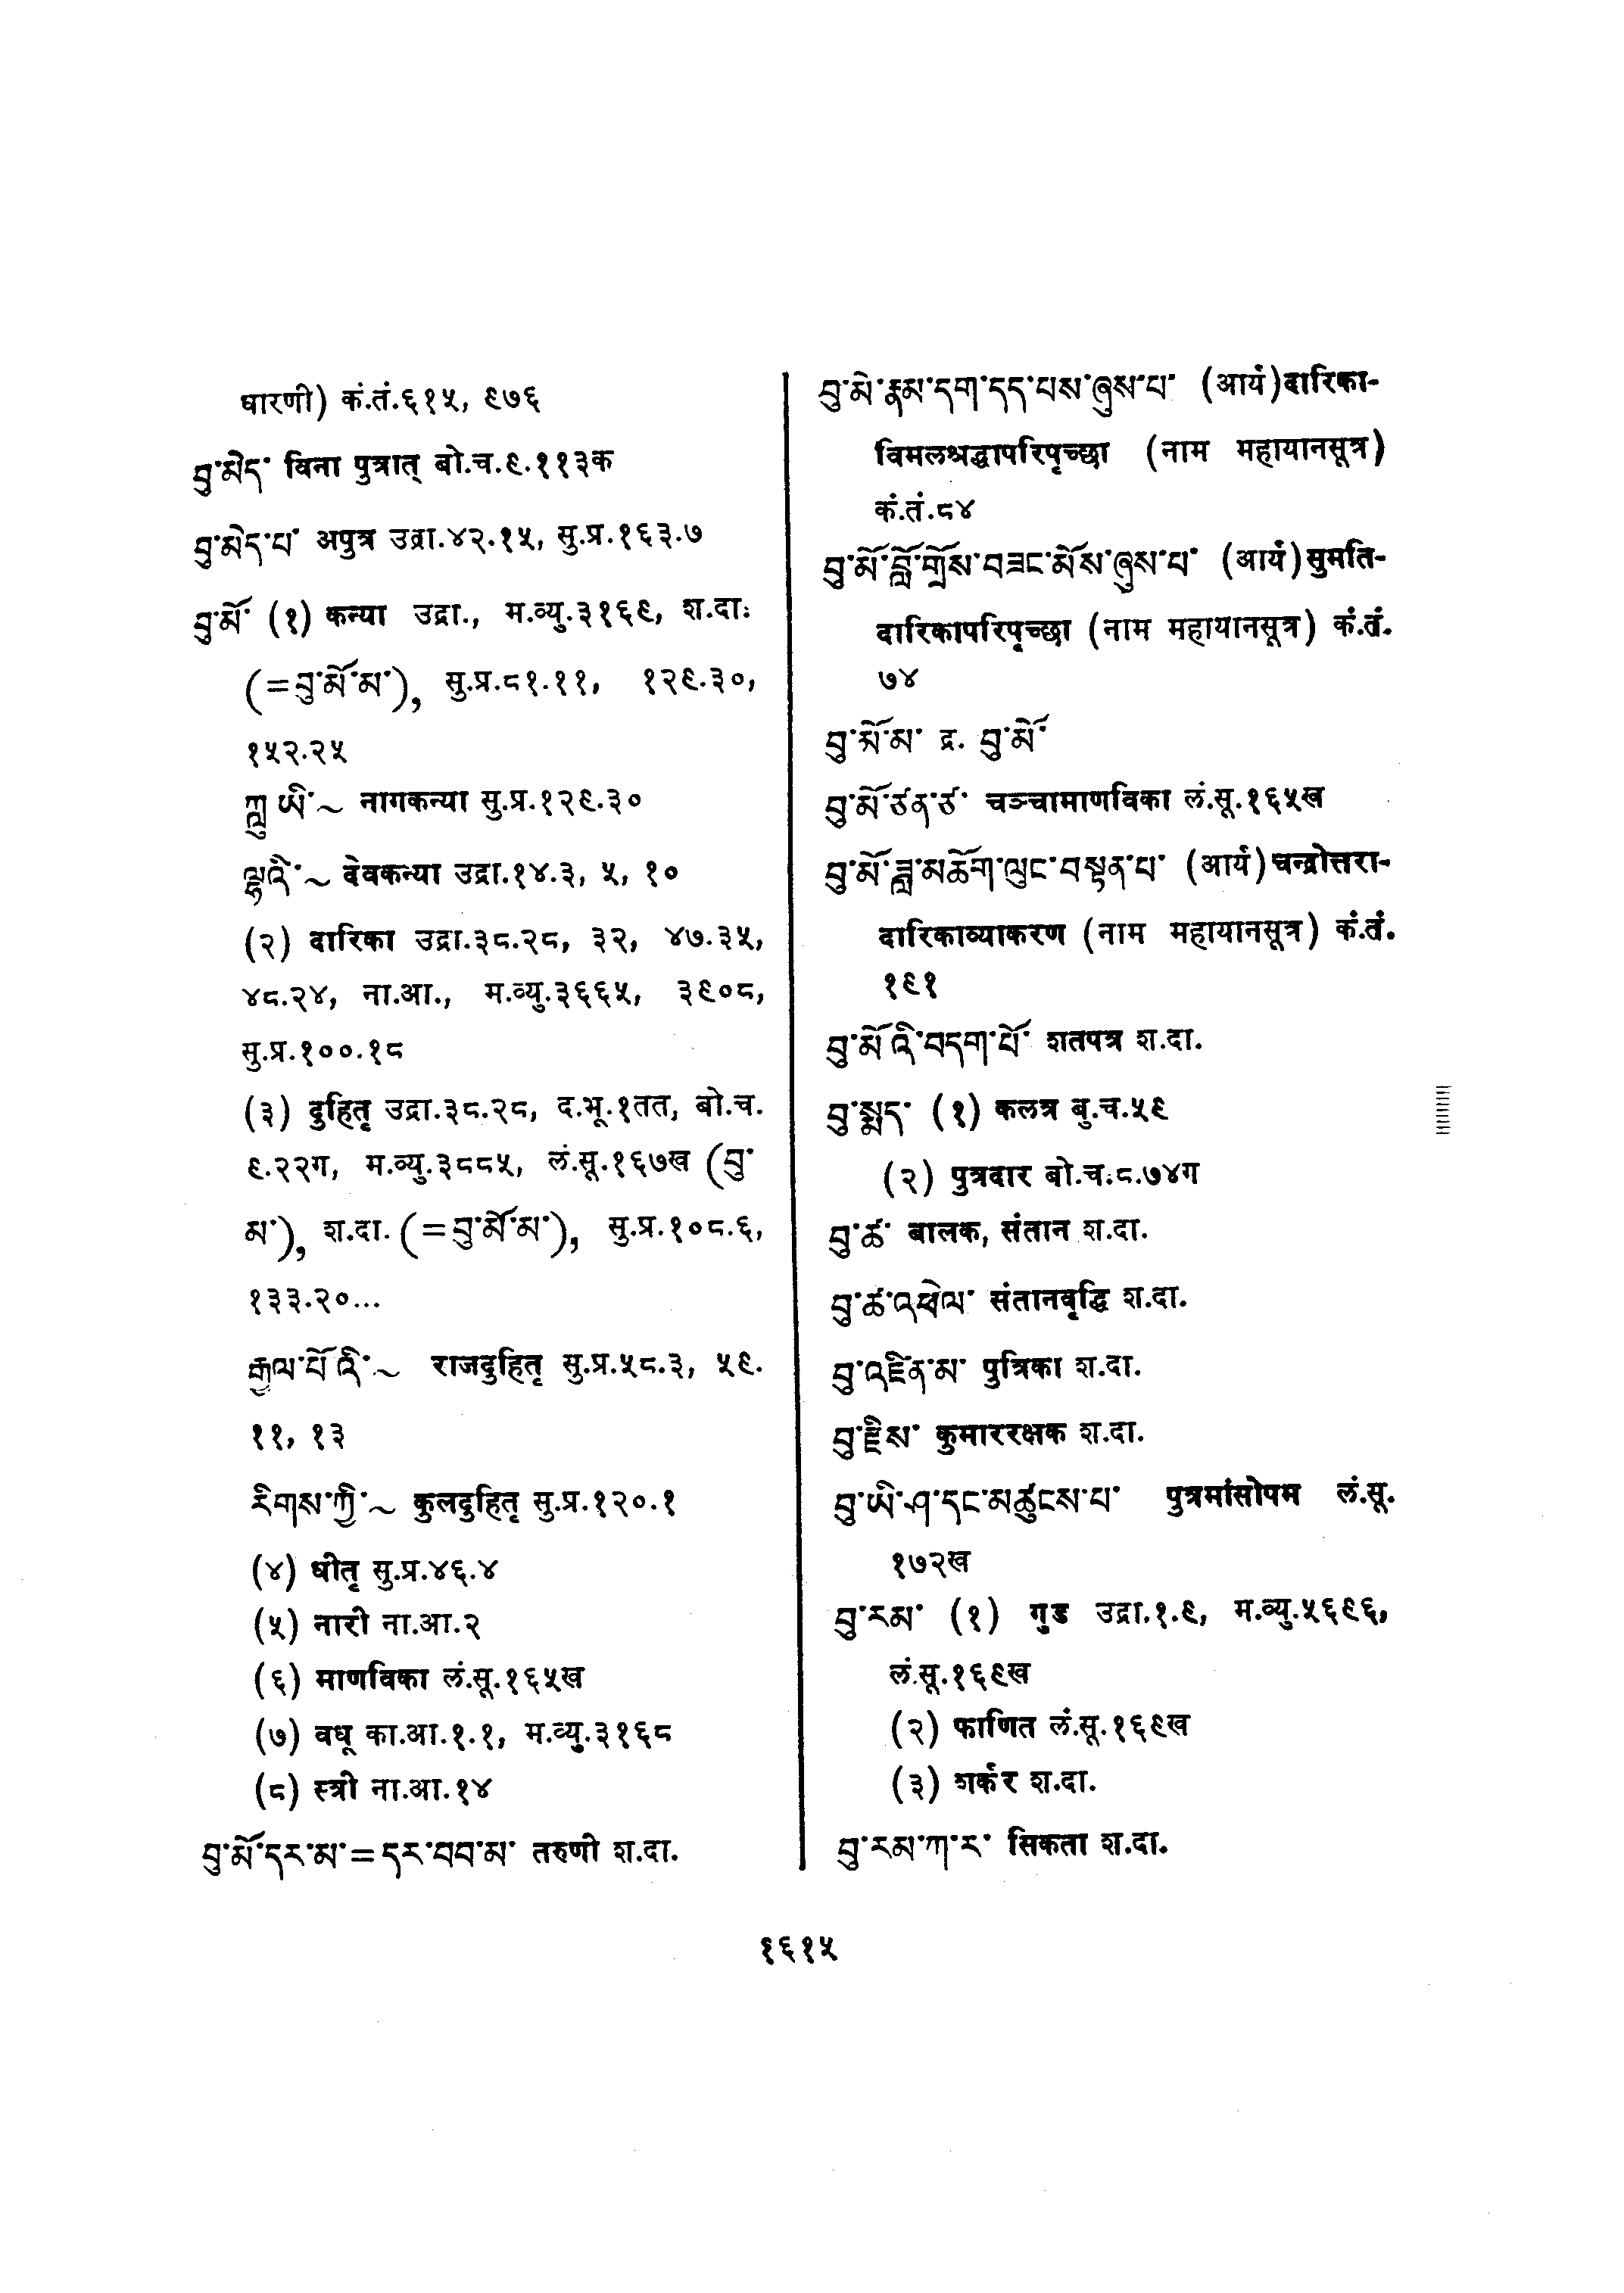 धारणी) कं.तं.६१५, ९७६
བུ་མེད་ विना पुत्रात् बो.च.९.११३क
བུ་མེད་པ་ अपुत्र उद्रा.४२.१५, सु.प्र.१६३.७
བུ་མོ་ (१) कन्या उद्रा., म.व्यु.३१६९, श.दा.
(=བུ་མོ་མ་), सु.प्र.८१.११, १२९.३०,
१५२.२५
ཀླུ་ཡི་~ नागकन्या सु.प्र.१२९.३०
ལྷའི་~ देवकन्या उद्रा.१४.३, ५, १०
(२) दारिका उद्रा.३८.२८, ३२, ४७.३५,
४८.२४, ना.आ., म.व्यु.३६६५, ३९०८,
सु.प्र.१००.१८
(३) दुहितृ उद्रा.३८.२८, द.भू.१तत, बो.च.
९.२२ग, म.व्यु.३८८५, लं.सू.१६७ख (བུ་
མ་), श.दा. (=བུ་མོ་མ་), सु.प्र.१०८.६,
१३३.२०...
རྒྱལ་པོའི་~ राजदुहितृ सु.प्र.५८.३, ५९.
११, १३
རིགས་ཀྱི་~ कुलदुहितृ सु.प्र.१२०.१
(४) धीतृ सु.प्र.४६.४
(५) नारी ना.आ.२
(६) माणविका लं.सू.१६५ख
(७) वधू का.आ.१.१, म.व्यु.३१६८
(८) स्त्री ना.आ.१४
བུ་མོ་དར་མ་=དར་བབ་མ་ तरुणी श.दा.
བུ་མེ་རྣམ་དག་དད་པས་ཞུས་པ་ (आर्य)दारिका-
विमलश्रद्धापरिपृच्छा (नाम महायानसूत्र)
कं.तं.८४
བུ་མོ་བློ་གྲོས་བཟང་མོས་ཞུས་པ་ (आर्य)सुमति-
दारिकापरिपृच्छा (नाम महायानसूत्र) कं.तं.
७४
བུ་མོ་མ་ द्र. བུ་མོ་
བུ་མོ་ཙན་ཙ་ चञ्चामाणविका लं.सू.१६५ख
བུ་མོ་ཟླ་མཆོག་ལུང་བསྟན་པ་ (आर्य)चन्द्रोत्तरा-
दारिकाव्याकरण (नाम महायानसूत्र) कं.तं.
१९१
བུ་མོའི་བདག་པོ་ शतपत्र श.दा.
བུ་སྨད་ (१) कलत्र बु.च.५९
(२) पुत्रदार बो.च.८.७४ग
བུ་ཚ་ बालक, संतान श.दा.
བུ་ཚ་འཕེལ་ संतानवृद्धि श.दा.
བུ་འཛིན་མ་ पुत्रिका श.दा.
བུ་རྫིས་ कुमाररक्षक श.दा.
བུ་ཡི་ཤ་དང་མཚུངས་པ་ पुत्रमांसोपम लं.सू.
१७२ख
བུ་རམ་ (१) गुड उद्रा.१.९, म.व्यु.५६९६,
लं.सू.१६९ख
(२) फाणित लं.सू.१६९ख
(३) शर्कर श.दा.
བུ་རམ་ཀ་ར་ सिकता श.दा.
१६१५